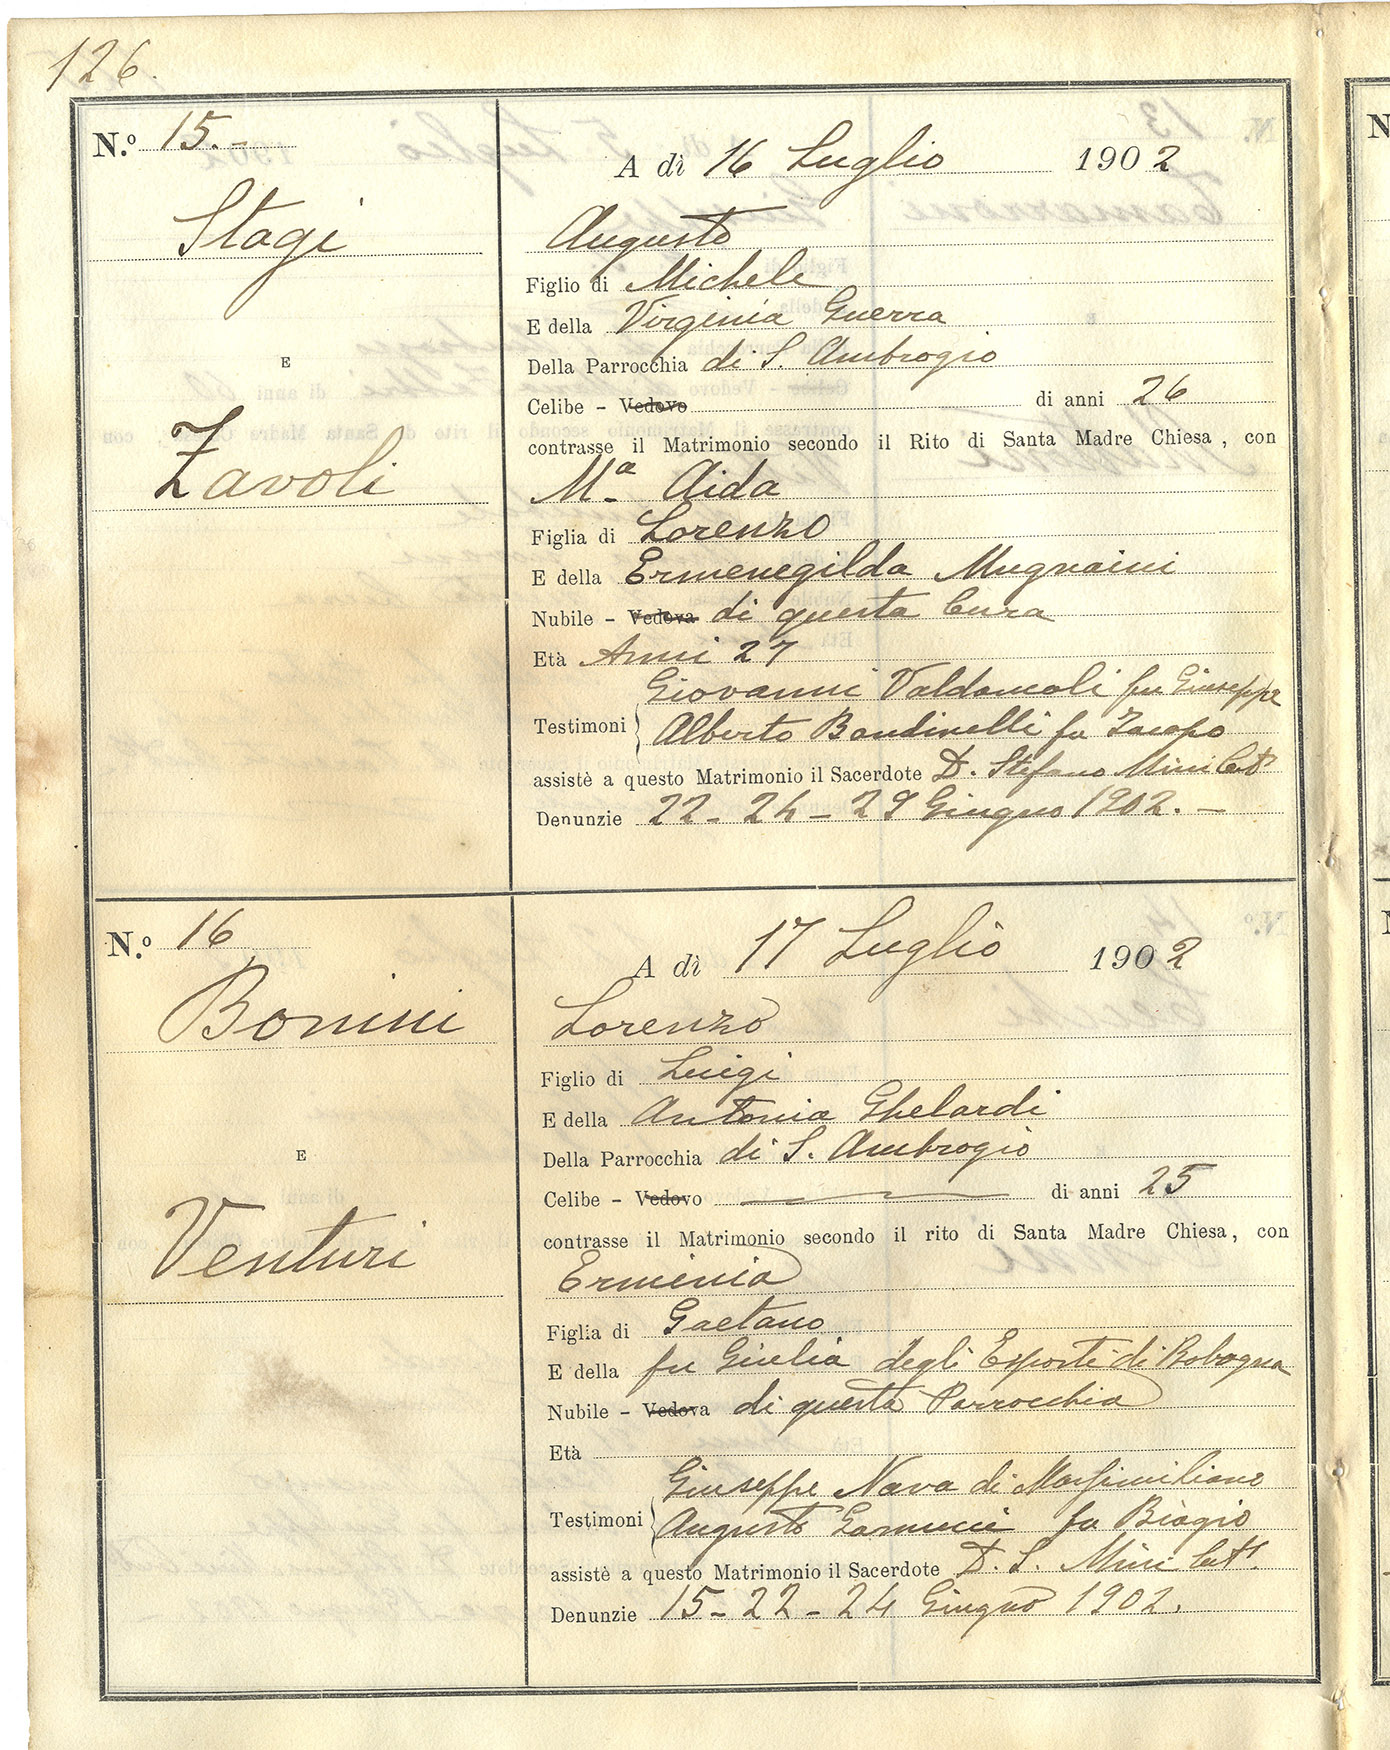 126.
N.º 15.-
A dì 16 Luglio 1902
Stagi
Augusto
Figlio di Michele
E della Virginia Guerra
E
Della Parrocchia di S. Ambrogio
Celibe - Vedovo di anni 26
contrasse il Matrimonio secondo il Rito di Santa Madre Chiesa, con
Zavoli
Mª Aida
Figlia di Lorenzo
E della Ermenegilda Mugnaini
Nubile - Vedova di questa Cura
Età Anni 27
Giovanni Valdamcoli fu Giuseppe
Testimoni Alberto Bandinelli fu Iacopo
assistè a questo Matrimonio il Sacerdote D. Stefano Mini
Denunzie 22 - 24 - 29 Giugno 1902. -
N.º 16
A dì 17 Luglio 1902
Bonini
Lorenzo
Figlio di Luigi
E della Antonia Ghelardi
E
Della Parrocchia di S. Ambrogio
Celibe - Vedovo di anni 25
contrasse il Matrimonio secondo il rito di Santa Madre Chiesa, con
Venturi
Erminia
Figlia di Gaetano
E della fu Giulia degli Esposti di Bologna
Nubile - Vedova di questa Parrocchia
Età
Giuseppe Nava di Massimiliano
Testimoni Augusto fu Biagio
assistè a questo Matrimonio il Sacerdote D. S. Mini
Denunzie 15 - 22 - 24 Giugno 1902.